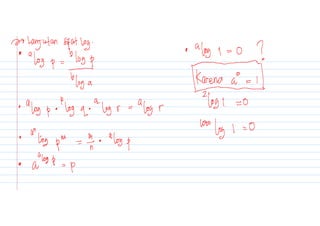 Lanjutan sifat log
• ᵃlog p = ᵇlog p / ᵇlog a
• ᵃlog p • ᵖlog q • ᵃlog r = ᵃlog r
• ᵃⁿlog pᵐ = m/n • ᵃlog p
• a^(ᵃlog p) = p
• ᵃlog 1 = 0 ?
Karena a⁰ = 1
²log 1 = 0
¹⁰⁰⁰log 1 = 0